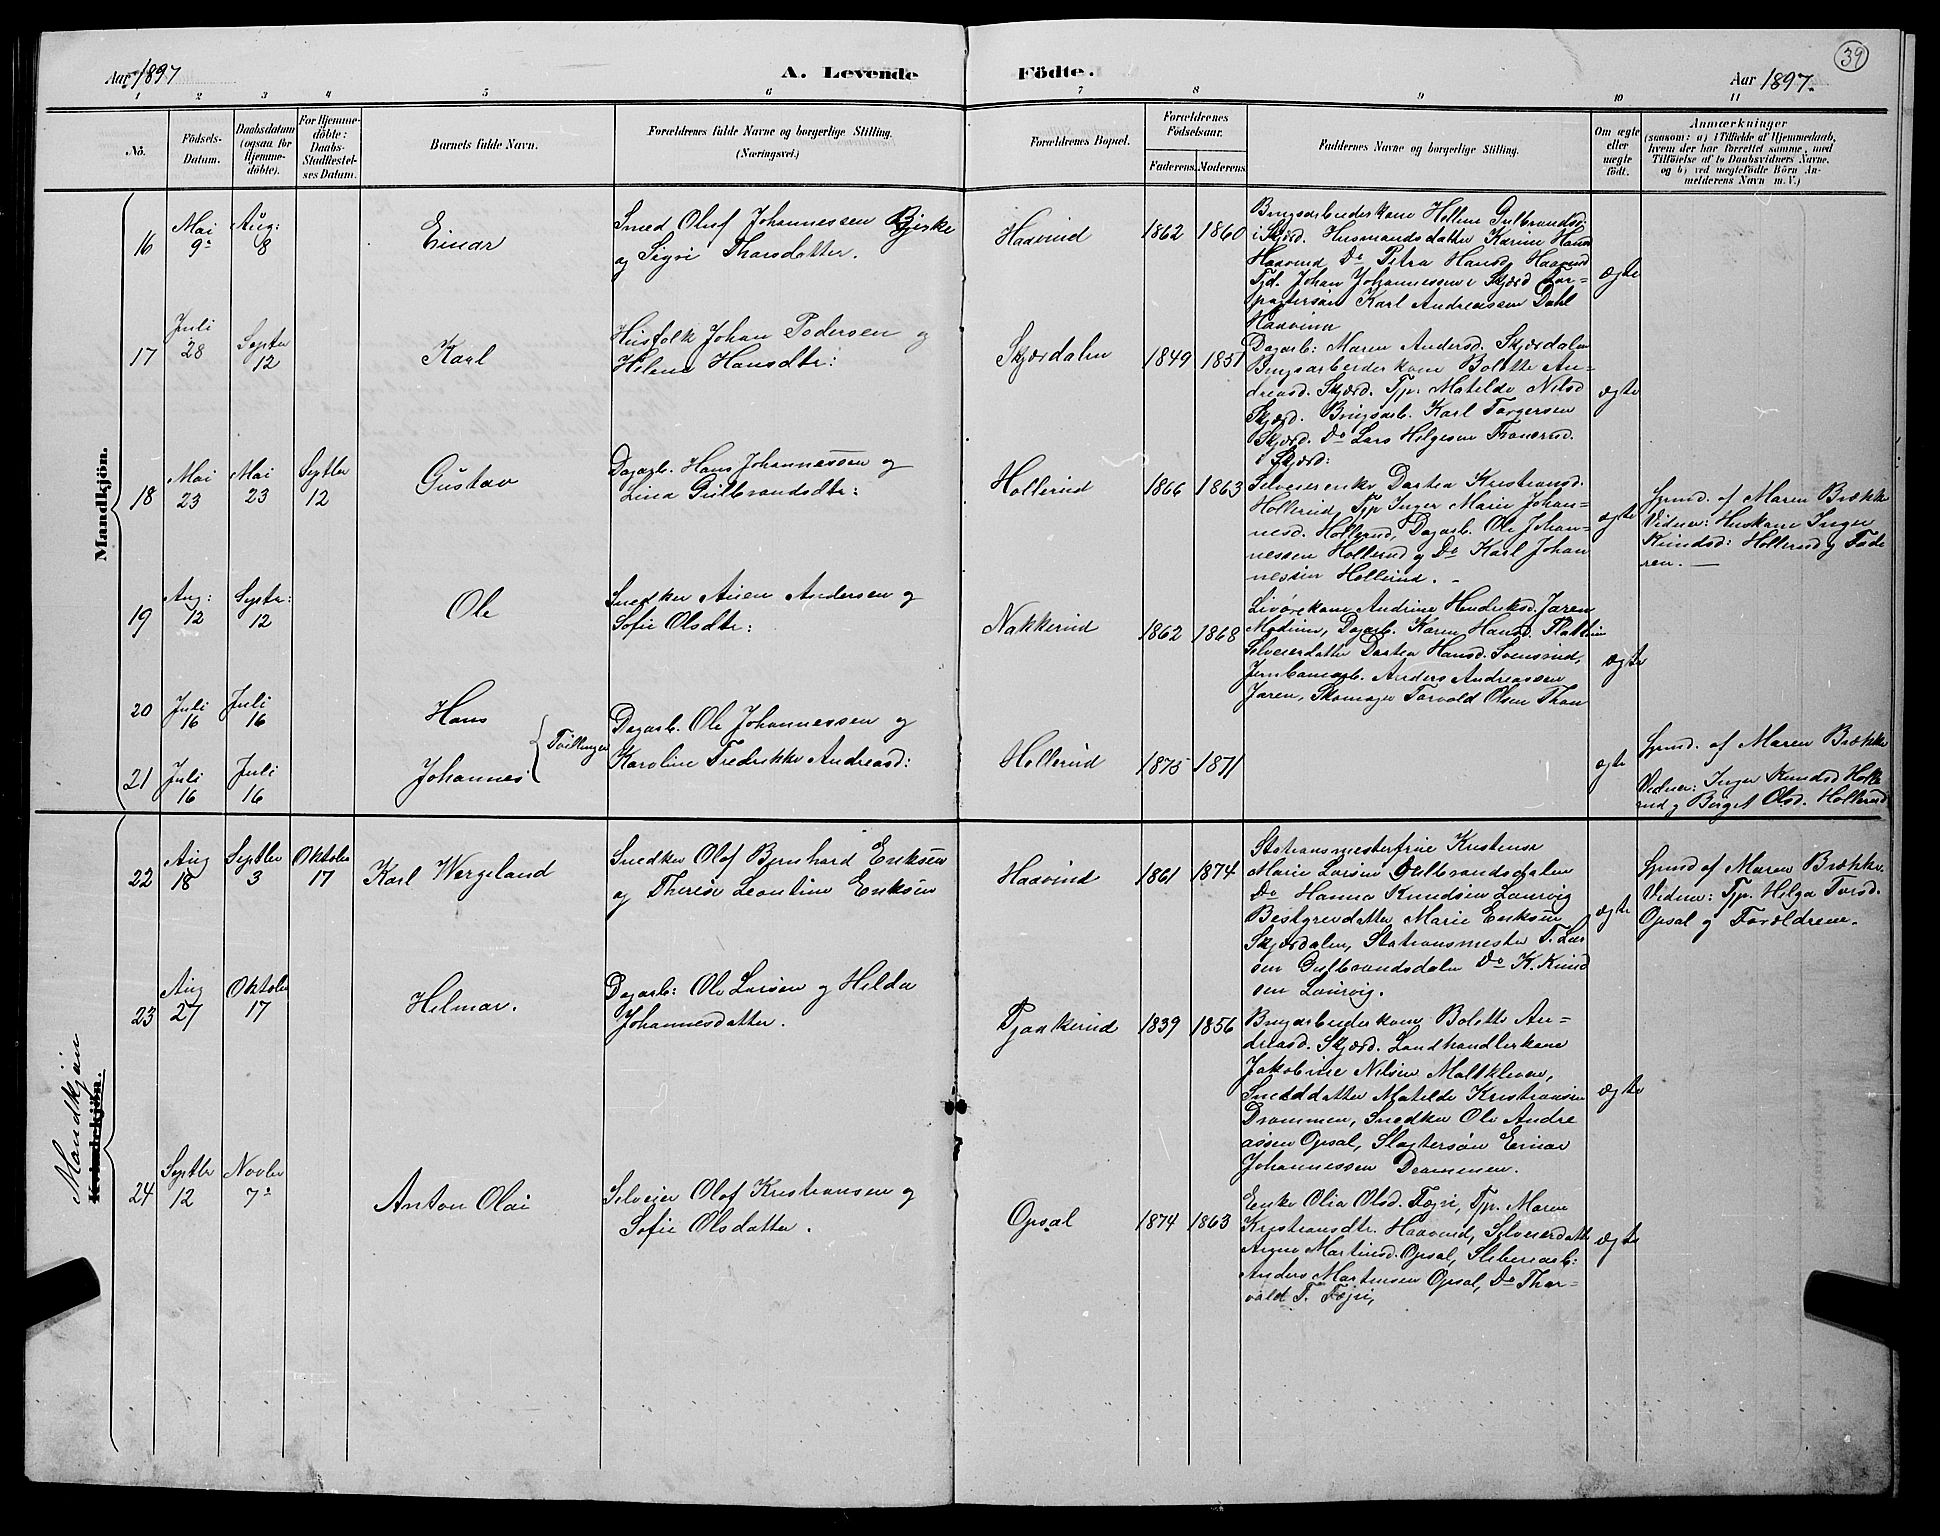 39
Aar 1897
A. Levende Födte.
Aar 1897.
1 2 3 4 5 6 7 8 9 10 11
Nô.
Födsels-
Datum.
Daabsdatum
(ogsaa for
Hjemme-
döbte).
For Hjemme-
döbte:
Daabs-
Stadfæstel-
ses Datum.
Barnets fulde Navn.
Forældrenes fulde Navne og borgerlige Stilling.
(Næringsvei.)
Forældrenes Bopæl.
Forældrenes
Födselsaar.
Faderens. Moderens.
Faddernes Navne og borgerlige Stilling.
Om ægte
eller
uægte
födt.
Anmærkninger
(saasom: a) i Tilfælde af Hjemmedaab,
hvem der har forrettet samme, med
Tilföielse af to Daabsvidners Navne,
og b) ved uægtefödte Börn An-
melderens Navn m. V.)
Mandkjön.
16
Mai
9de
Aug:
8
Einar
Smed Oluf Johannessen Bjerke
og Sigri Thorsdatter.
Haavind
1862 1860
Brugsarbeiderkone Helene Gulbrandsd.
i Skjærd. Husmandsdatter Karine Hansd.
Haavind Do Petra Hansd. Haavind
Tjd. Johan Johannessen i Skjærd For-
pagtersön Karl Andreassen Dahl
Haavind
ægte
17
Juli
28
Septer
12
Karl
Husfolk Johan Pedersen og
Helene Hansdtr:
Skjærdalen
1849 1851
Dagarb: Maren Andersd. Skjærdalen
Brugsarbeiderkone Bolette An-
dreasd. Skjærd. Tjp. Matilde Nilsd
Skjærd. Brugsarb. Karl Torgersen
Skjærd. Do Lars Helgesen Tronrud.
i Skjærd:
ægte
18
Mai
23
Mai
23
Septbr
12
Gustav
Dagarb. Hans Johannessen og
Lina Gulbrandsdtr:
Hollerud
1866 1863
Selveierenke Dortea Kristiansd.
Hollerud, Tjp Inger Marie Johan-
nesd. Hollerud, Dagarb. Ole Johan-
nessen Hollerud og Do Karl Johan
nessen Hollerud. -
ægte
Hjemd. af Maren Brække
Vidner: Huskone Inger
Knudsd: Hollerud og Fade
ren. —
19
Aug:
12
Septr:
12
Ole
Snedker Anen Andersen og
Sofie Olsdtr:
Nakkerud
1862 1868
Andrine Henriksd. Jaren
Modum, Dagarb. Karen Hansd.
Selveierdatter Dortea Hansd. Svensrud,
Jernbanearb. Anders Andreassen
Jaren, Skomager Torvald Olsen Thon
ægte
20
Juli
16
Juli
16
Hans
21
Juli
16
Juli
16
Johannes
Tvillinger
Dagarb. Ole Johannessen og
Karoline Fredrikke Andreasd:
Hollerud
1875 1871
ægte
Hjemd. af Maren Brække
Vidner: Inger Knudsd Holle
rud og Birget Olsd. Hollerud
Mandkjön
Kvindekjön.
22
Aug
18
Septbr
3
Oktober
17
Karl Wergeland
Snedker Olof Bernhard Eriksen
og Therese Leontine Eriksen
Haavind
1861 1874
Stationsmesterfrue Kristense
Marie Larsen Gulbrandsdalen
Do Hanna Knudsen Laurvig
Bestyrerdatter Marie Eriksen
Skjærdalen, Stationsmester T. Lar
sen Gulbrandsdalen Do K. Knud
sen Laurvig.
ægte
Hjemd af Maren Brække.
Vidner: Tjp. Helga Torsd.
Opsal og Forældrene.
23
Aug
27
Oktober
17
Helmar.
Dagarb: Ole Larsen og Hilda
Johannesdatter.
Tjaakerud
1839 1856
Brugarbeiderkone Bolette An=
dreasd. Skjærd. Landhandlerkone
Jakobine Nilsen Maltkleven,
Smeddatter Matilde Kristiansen
Drammen, Snedker Ole Andre
assen Opsal, Slagtersøn Einar
Johannessen Drammen.
ægte
24
Septbr
12
Novbr
7de
Anton Olai
Selveier Olof Kristiansen og
Sofie Olsdatter.
Opsal
1874 1863
Enke Olia Olsd. Fægri, Tjp. Maren
Kristiansdtr. Haavind, Selveierdatter
Martinsd. Opsal, Sliberiarb:
Anders Martinsen Opsal, Do Thor-
vald T. Fægri,
ægte